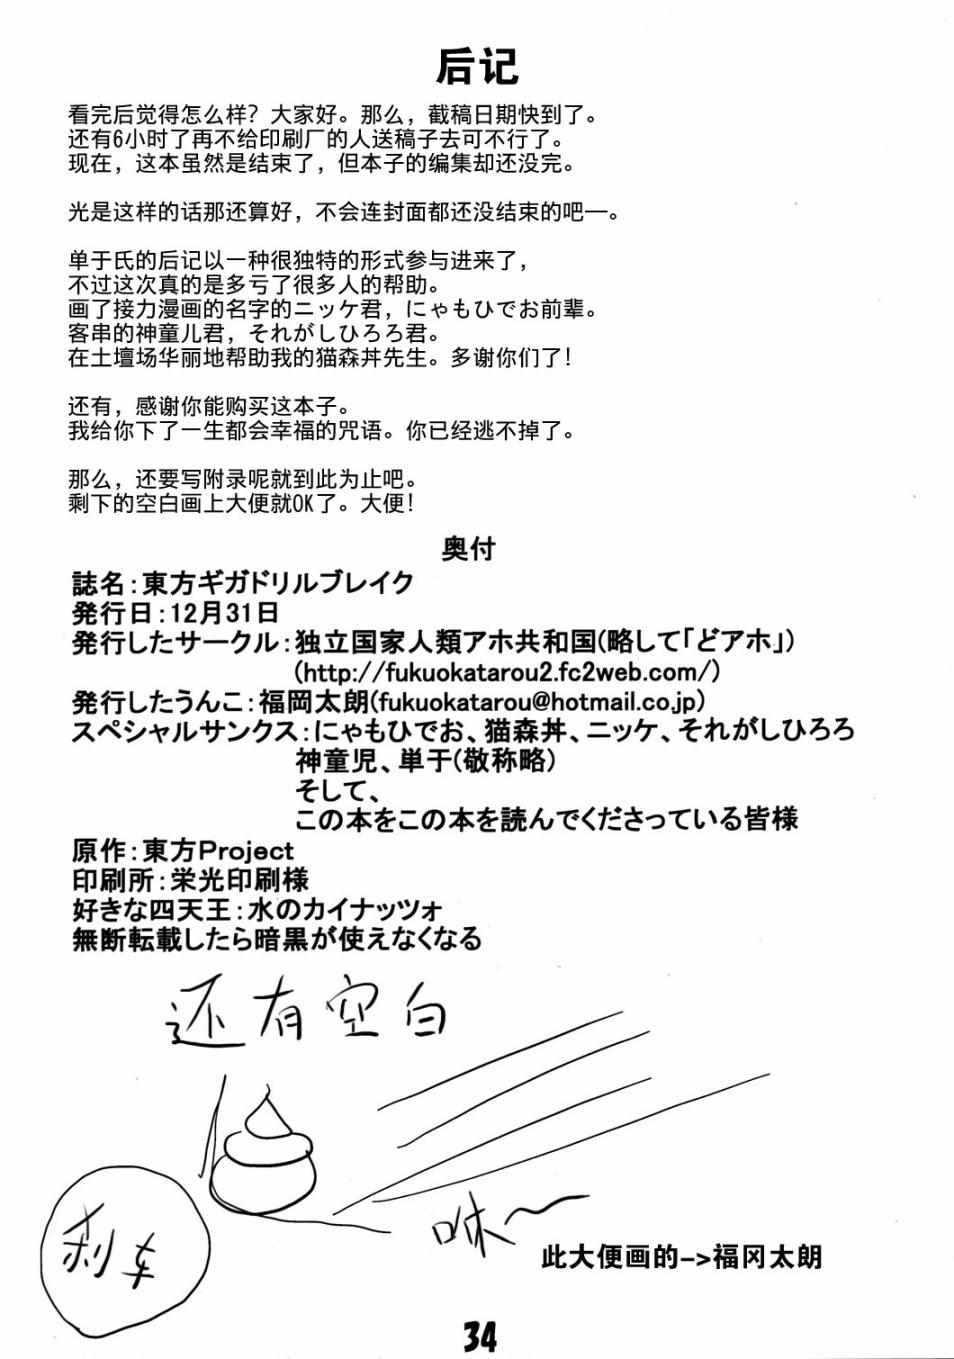 后记
看完后觉得怎么样？大家好。那么，截稿日期快到了。
还有6小时了再不给印刷厂的人送稿子去可不行了。
现在，这本虽然是结束了，但本子的编集却还没完。
光是这样的话那还算好，不会连封面都还没结束的吧—。
单于氏的后记以一种很独特的形式参与进来了，
不过这次真的是多亏了很多人的帮助。
画了接力漫画的名字的ニッケ君，にゃもひでお前辈。
客串的神童儿君，それがしひろろ君。
在土壇场华丽地帮助我的猫森丼先生。多谢你们了！
还有，感谢你能购买这本子。
我给你下了一生都会幸福的咒语。你已经逃不掉了。
那么，还要写附录呢就到此为止吧。
剩下的空白画上大便就OK了。大便！
奥付
誌名：東方ギガドリルブレイク
発行日：12月31日
発行したサークル：独立国家人類アホ共和国(略して「どアホ」)
(http://fukuokatarou2.fc2web.com/)
発行したうんこ：福岡太朗(fukuokatarou@hotmail.co.jp)
スペシャルサンクス：にゃもひでお、猫森丼、ニッケ、それがしひろろ
神童児、単于(敬称略)
そして、
この本をこの本を読んでくださっている皆様
原作：東方Project
印刷所：栄光印刷様
好きな四天王：水のカイナッツォ
無断転載したら暗黒が使えなくなる
还有空白
刹车
咻～
此大便画的->福冈太朗
34